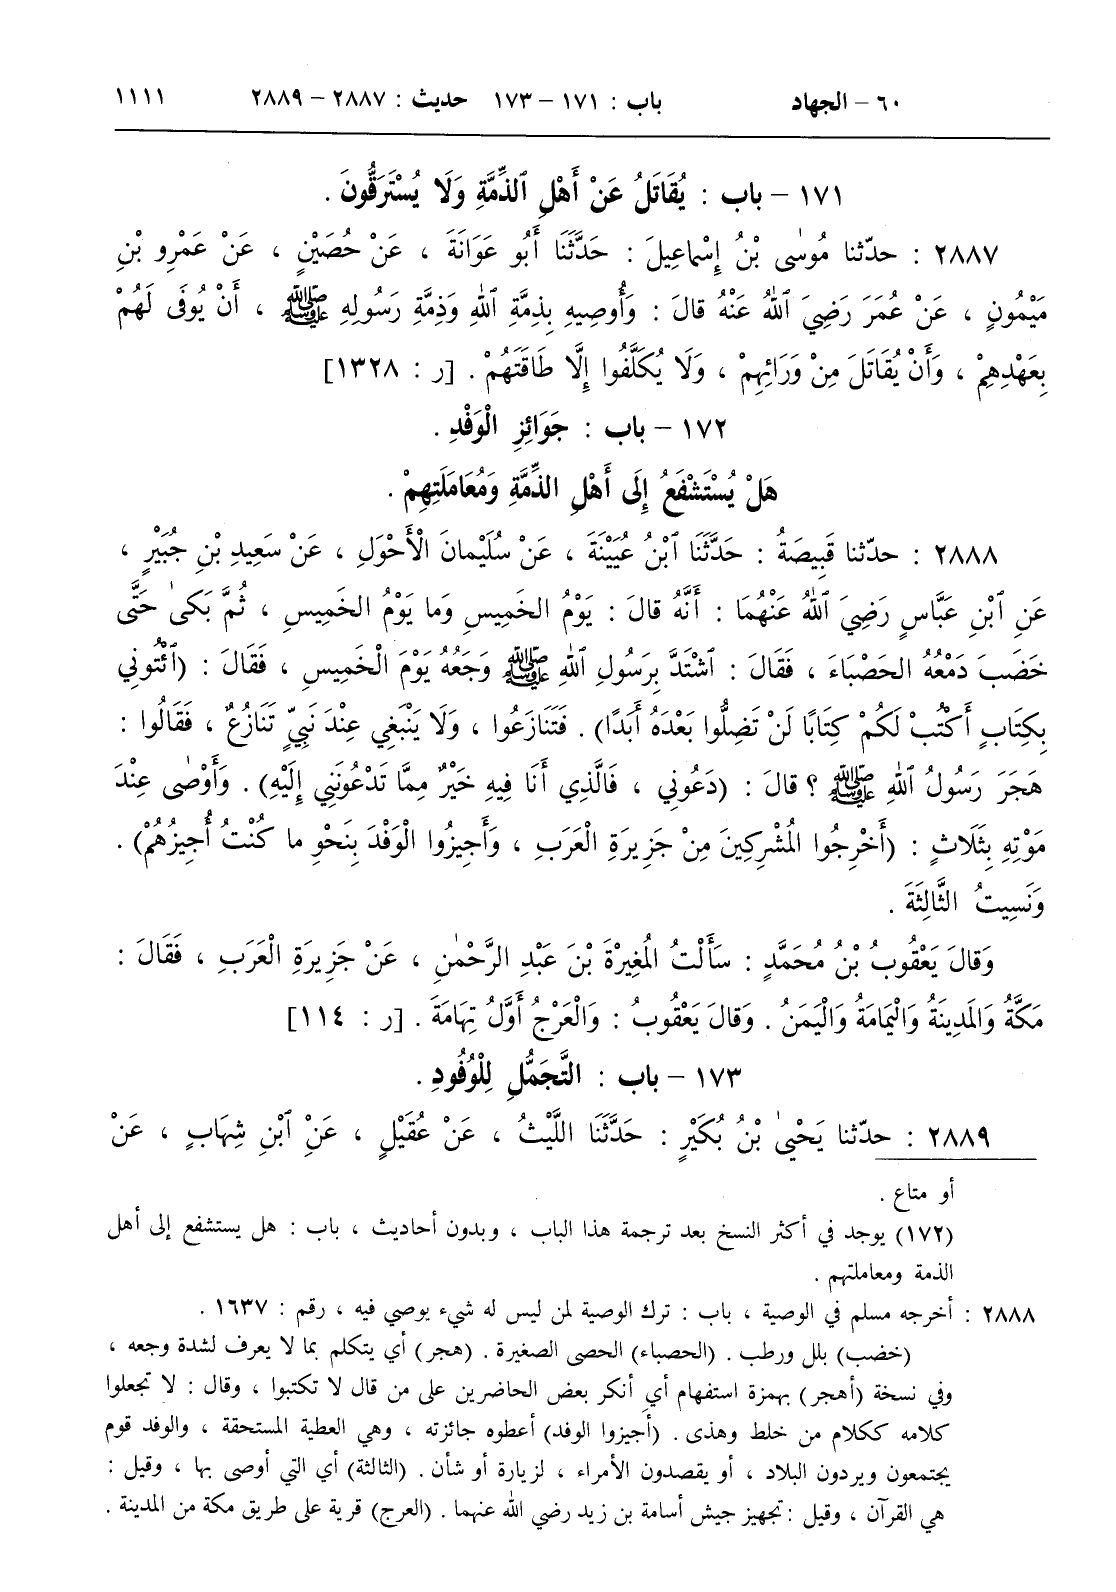 ٦٠ – الجهاد باب : ١٧١ – ١٧٣ حديث : ٢٨٨٧ – ٢٨٨٩ ١١١١
١٧١ – باب : يُقَاتَلُ عَنْ أَهْلِ ٱلذِّمَّةِ وَلَا يُسْتَرَقُّونَ .
٢٨٨٧ : حدّثنا مُوسٰى بْنُ إِسْماعِيلَ : حَدَّثَنَا أَبُو عَوَانَةَ ، عَنْ حُصَيْنٍ ، عَنْ عَمْرِو بْنِ
مَيْمُونٍ ، عَنْ عُمَرَ رَضِيَ ٱللهُ عَنْهُ قالَ : وَأُوصِيهِ بِذِمَّةِ ٱللهِ وَذِمَّةِ رَسُولِهِ ﷺ ، أَنْ يُوفَى لَهُمْ
بِعَهْدِهِمْ ، وَأَنْ يُقَاتَلَ مِنْ وَرَائِهِمْ ، وَلَا يُكَلَّفُوا إِلَّا طَاقَتَهُمْ . [ر : ١٣٢٨]
١٧٢ – باب : جَوَائِزِ الْوَفْدِ .
هَلْ يُسْتَشْفَعُ إِلَى أَهْلِ الذِّمَّةِ وَمُعَامَلَتِهِمْ .
٢٨٨٨ : حدّثنا قَبِيصَةُ : حَدَّثَنَا ٱبْنُ عُيَيْنَةَ ، عَنْ سُلَيْمانَ الْأَحْوَلِ ، عَنْ سَعِيدِ بْنِ جُبَيْرٍ ،
عَنِ ٱبْنِ عَبَّاسٍ رَضِيَ ٱللهُ عَنْهُمَا : أَنَّهُ قالَ : يَوْمُ الخَمِيسِ وَما يَوْمُ الخَمِيسِ ، ثُمَّ بَكىٰ حَتَّى
خَضَبَ دَمْعُهُ الحَصْبَاءَ ، فَقَالَ : ٱشْتَدَّ بِرَسُولِ ٱللهِ ﷺ وَجَعُهُ يَوْمَ الْخَمِيسِ ، فَقَالَ : (ٱئْتُونِي
بِكِتَابٍ أَكْتُبْ لَكُمْ كِتَابًا لَنْ تَضِلُّوا بَعْدَهُ أَبَدًا) . فَتَنَازَعُوا ، وَلَا يَنْبَغِي عِنْدَ نَبِيٍّ تَنَازُعٌ ، فَقَالُوا :
هَجَرَ رَسُولُ ٱللهِ ﷺ ؟ قالَ : (دَعُونِي ، فَالَّذِي أَنَا فِيهِ خَيْرٌ مِمَّا تَدْعُونَنِي إِلَيْهِ) . وَأَوْصٰى عِنْدَ
مَوْتِهِ بِثَلَاثٍ : (أَخْرِجُوا الْمُشْرِكِينَ مِنْ جَزِيرَةِ الْعَرَبِ ، وَأَجِيزُوا الْوَفْدَ بِنَحْوِ ما كُنْتُ أُجِيزُهُمْ) .
وَنَسِيتُ الثَّالِثَةَ .
وَقالَ يَعْقُوبُ بْنُ مُحَمَّدٍ : سَأَلْتُ الْمُغِيرَةَ بْنَ عَبْدِ الرَّحْمٰنِ ، عَنْ جَزِيرَةِ الْعَرَبِ ، فَقَالَ :
مَكَّةُ وَالْمَدِينَةُ وَالْيَمَامَةُ وَالْيَمَنُ . وَقالَ يَعْقُوبُ : وَالْعَرْجُ أَوَّلُ تِهَامَةَ . [ر : ١١٤]
١٧٣ – باب : التَّجَمُّلِ لِلْوُفُودِ .
٢٨٨٩ : حدّثنا يَحْيىٰ بْنُ بُكَيْرٍ : حَدَّثَنَا اللَّيْثُ ، عَنْ عُقَيْلٍ ، عَنِ ٱبْنِ شِهَابٍ ، عَنْ
أو متاع .
(١٧٢) يوجد في أكثر النسخ بعد ترجمة هذا الباب ، وبدون أحاديث ، باب : هل يستشفع إلى أهل
الذمة ومعاملتهم .
٢٨٨٨ : أخرجه مسلم في الوصية ، باب : ترك الوصية لمن ليس له شيء يوصي فيه ، رقم : ١٦٣٧ .
(خضب) بلل ورطب . (الحصباء) الحصى الصغيرة . (هجر) أي يتكلم بما لا يعرف لشدة وجعه ،
وفي نسخة (أهجر) بهمزة استفهام أي أنكر بعض الحاضرين على من قال لا تكتبوا ، وقال : لا تجعلوا
كلامه ككلام من خلط وهذى . (أجيزوا الوفد) أعطوه جائزته ، وهي العطية المستحقة ، والوفد قوم
يجتمعون ويردون البلاد ، أو يقصدون الأمراء ، لزيارة أو شأن . (الثالثة) أي التي أوصى بها ، وقيل :
هي القرآن ، وقيل : تجهيز جيش أسامة بن زيد رضي الله عنهما . (العرج) قرية على طريق مكة من المدينة .